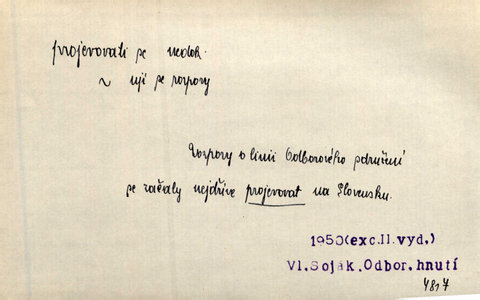 projevovati se nedok.
~ují se rozpory
Rozpory o linii Odborového sdružení
se začaly nejdříve projevovat na Slovensku.
1950(exc.II.vyd.)
Vl.Soják.Odbor.hnutí
4817